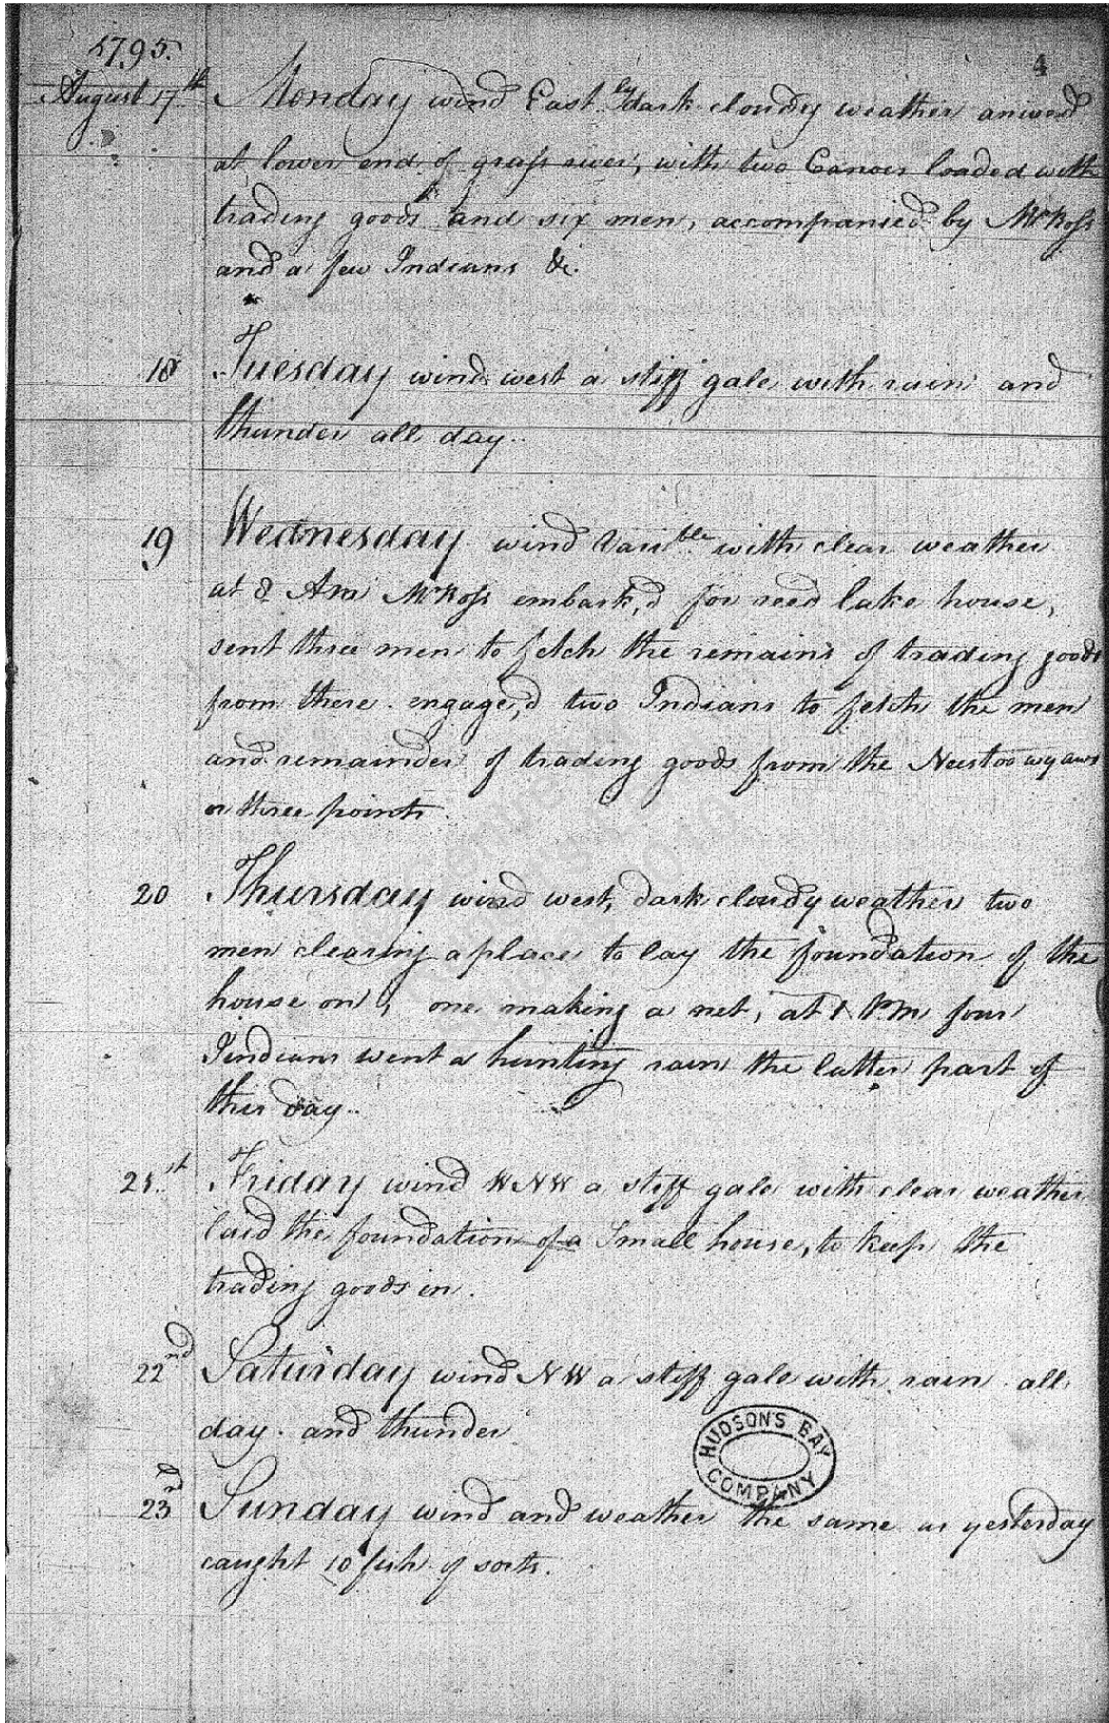 1795.
4
August 17th Monday wind East.ly dark cloudy weather arived
at lower end of grass river, with two Canoes loaded with
trading goods and six men, accompanied by Mr Ross
and a few Indians &c.
18 Tuesday wind west a stiff gale with rain and
thunder all day..
19 Wednesday wind Varible with clear weather
at 8 Am Mr Ross embark,d for reed lake house,
sent three men to fetch the remains of trading goods
from there. engage,d two Indians to fetch the men
and remainder of trading goods from the
or three points.
20 Thursday wind west, dark cloudy weather two
men clearing a place to lay the foundation of the
house on, one making a net, at 1 P.m four
Indians went a hunting rain the latter part of
this day..
21st Friday wind WNW a stiff gale with clear weather
laid the foundation of a Small house, to keep the
trading goods in.
22nd Saturday wind NW a stiff gale with rain all
day. and thunder
HUDSON'S BAY
COMPANY
23rd Sunday wind and weather the same as yesterday
caught 10 fish of sorts.